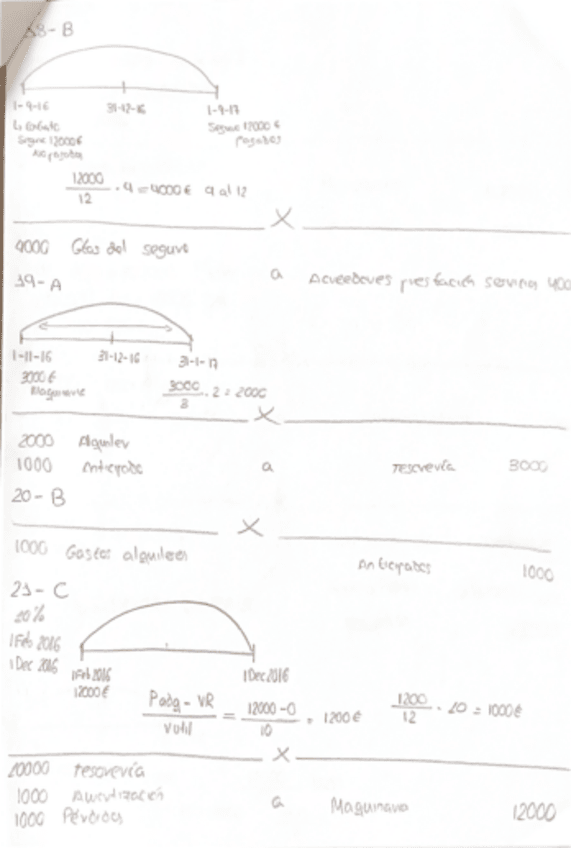 18-B
1-9-16 31-12-16 1-9-17
Seguro 12000€ Seguro 12000€
No pagados pagados
12000
12 · 4 = 4000€ 9 al 12
X
4000 Gtos del seguro
a Acreedores prestación servicios 400
19-A
1-11-16 31-12-16 31-1-17
3000€
3000
3 · 2 = 2000
X
2000 Alquiler
1000 Anticipado a tesorería 3000
20-B
X
1000 Gastos alquileres
Anticipados 1000
21-C
10%
1 Feb 2016
1 Dec 2016
1 Feb 2016 1 Dec 2016
12000€
Padq - VR = 12000-0 = 1200€
Vutil 10
1200
12 · 10 = 1000€
X
10000 tesorería
1000 Amortización
a Maquinaria 12000
1000 Pérdidas